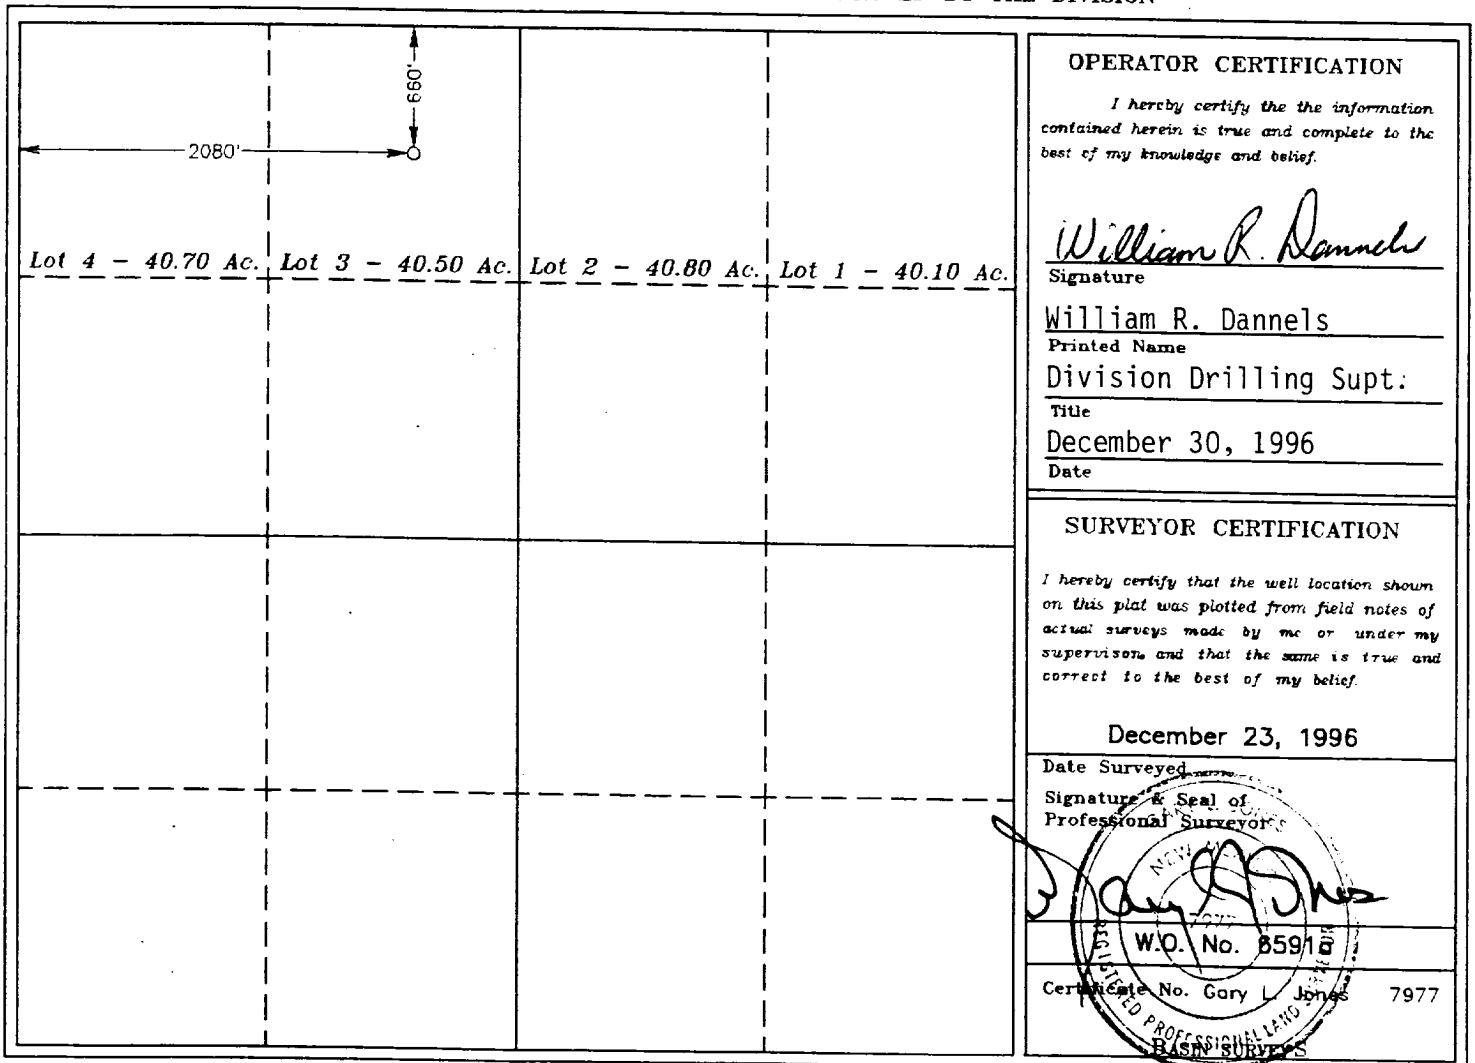 660'
2080'
Lot 4 - 40.70 Ac. Lot 3 - 40.50 Ac. Lot 2 - 40.80 Ac. Lot 1 - 40.10 Ac.
OPERATOR CERTIFICATION
I hereby certify the the information
contained herein is true and complete to the
best of my knowledge and belief.
William R. Dannels
Signature
William R. Dannels
Printed Name
Division Drilling Supt.
Title
December 30, 1996
Date
SURVEYOR CERTIFICATION
I hereby certify that the well location shown
on this plat was plotted from field notes of
actual surveys made by me or under my
supervison, and that the same is true and
correct to the best of my belief.
December 23, 1996
Date Surveyed
Signature & Seal of
Professional Surveyor
Gary L. Jones
NEW
7977
REGISTERED PROFESSIONAL LAND SURVEYOR
W.O. No.
Certificate No. Gary L. Jones 7977
BASIN SURVEYS